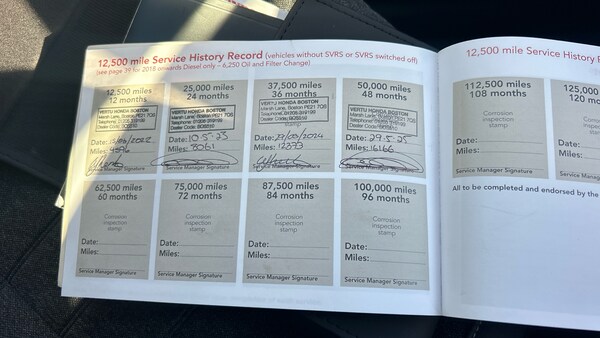 12,500 mile Service History Record (vehicles without SVRS or SVRS switched off)
(see page 39 for 2018 onwards Diesel only – 6,250 Oil and Filter Change)
12,500 miles
12 months
VERTU HONDA BOSTON
Marsh Lane, Boston PE21 7QS
Date:
Miles:
25,000 miles
24 months
VERTU HONDA BOSTON
Marsh Lane, Boston PE21 7QS
Date: 10.5.23
Miles: 8061
Service Manager Signature
37,500 miles
36 months
VERTU HONDA BOSTON
Marsh Lane, Boston PE21 7QS
Telephone: 01205 319199
Dealer Code:
Date:
Miles: 12373
Service Manager Signature
50,000 miles
48 months
VERTU HONDA BOSTON
Marsh Lane, Boston PE21 7QS
Dealer Code:
Date: 29.5.25
Miles: 16166
Service Manager Signature
62,500 miles
60 months
Corrosion
inspection
stamp
Date:
Miles:
Service Manager Signature
75,000 miles
72 months
Corrosion
inspection
stamp
Date:
Miles:
Service Manager Signature
87,500 miles
84 months
Corrosion
inspection
stamp
Date:
Miles:
Service Manager Signature
100,000 miles
96 months
Corrosion
inspection
stamp
Date:
Miles:
Service Manager Signature
12,500 mile Service History
112,500 miles
108 months
Corrosion
inspection
stamp
Date:
Miles:
Service Manager Signature
125,0
120 mo
Date:
Miles:
Service Manager
All to be completed and endorsed by the